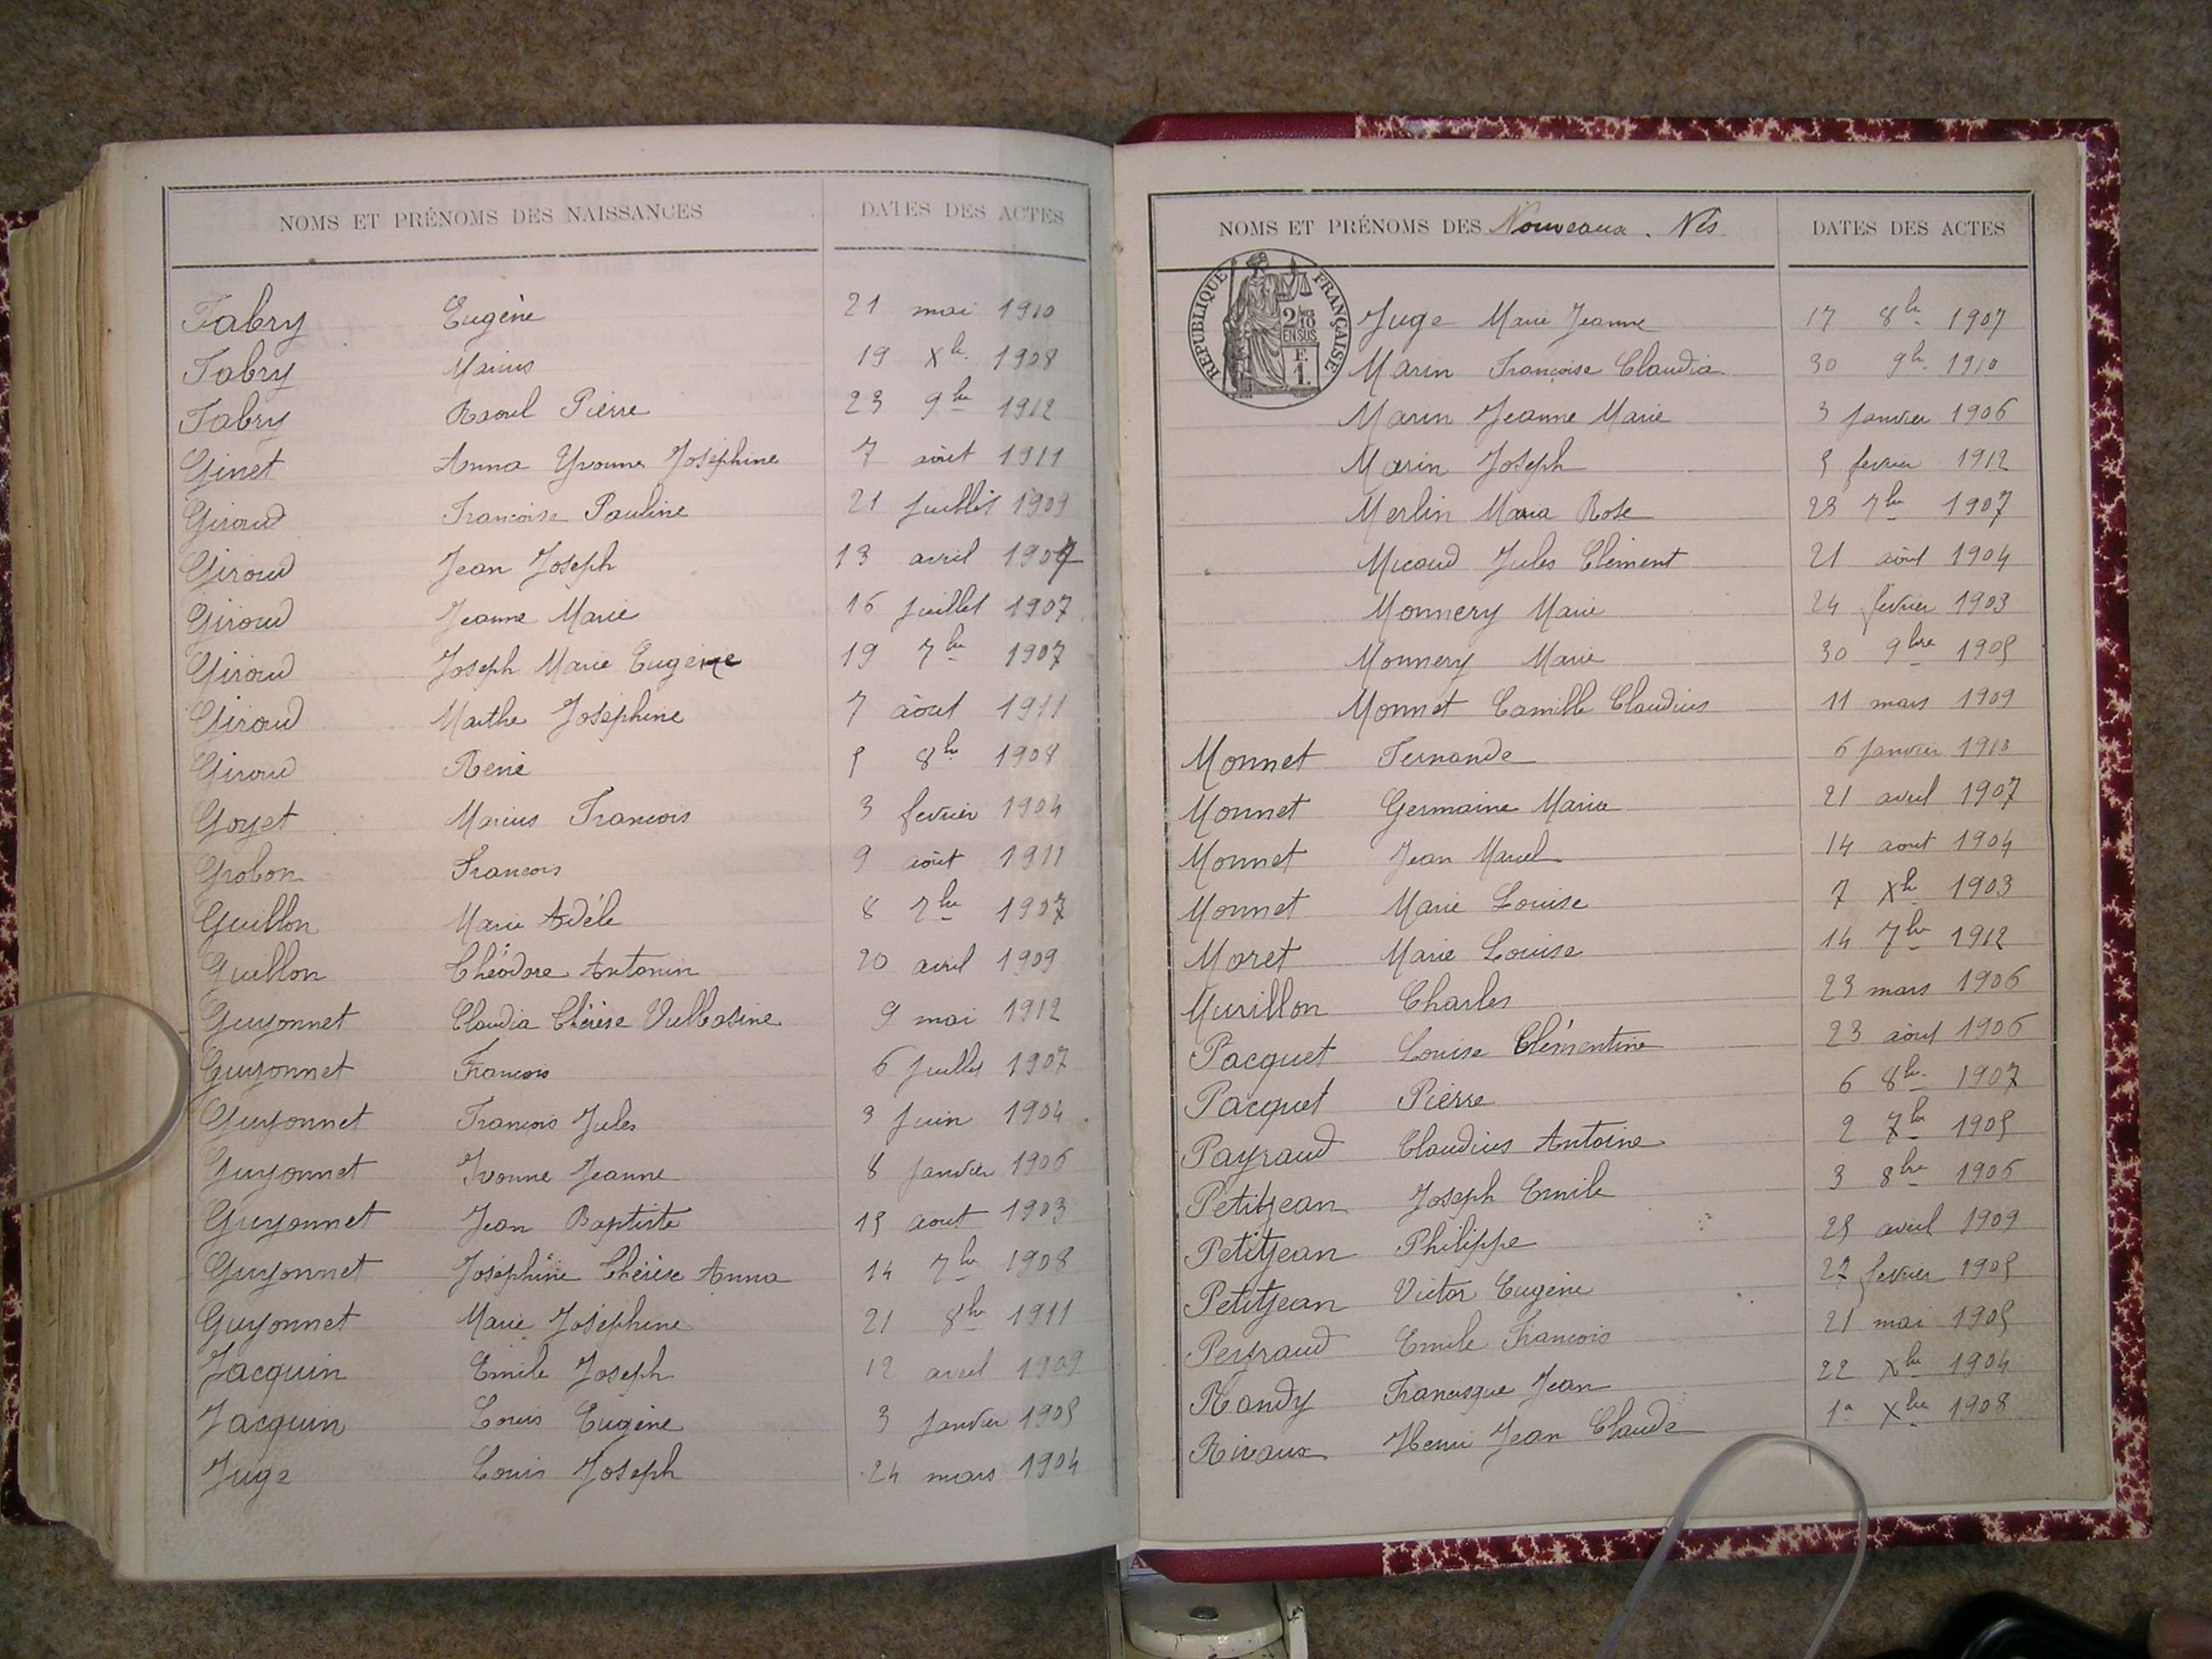 NOMS ET PRÉNOMS DES NAISSANCES DATES DES ACTES
Fabry Eugène 21 mai 1910
Fabry Marius 19 Xbr 1908
Fabry Raoul Pierre 23 9bre 1912
Ginet Anna Yvonne Joséphine 7 août 1911
Giroud Francoise Pauline 21 juillet 1909
Giroud Jean Joseph 13 avril 1907
Giroud Jeanne Marie 16 juillet 1907
Giroud Joseph Marie Eugène 19 7bre 1907
Giroud Marthe Joséphine 7 août 1911
Giroud René 5 8bre 1908
Goyet Marius Francois 3 fevrier 1904
Grobon Francois 9 août 1911
Guillon Marie Adéle 8 7bre 1907
Guillon Théodore Antonin 20 avril 1909
Guyonnet Claudia Thérèse Vulbasine 9 mai 1912
Guyonnet Francois 6 juillet 1907
Guyonnet Francois Jules 3 juin 1904
Guyonnet Ivonne Jeanne 8 janvier 1906
Guyonnet Jean Baptiste 15 aout 1903
Guyonnet Joséphine Thérèse Anna 14 7bre 1908
Guyonnet Marie Joséphine 21 8bre 1911
Jacquin Emile Joseph 12 avril 1909
Jacquin Louis Eugène 3 janvier 1905
Juge Louis Joseph 24 mars 1904
NOMS ET PRÉNOMS DES Nouveaux. Nés DATES DES ACTES
RÉPUBLIQUE FRANÇAISE
2/10
EN SUS
F.
1.
Juge Marie Jeanne 17 8bre 1907
Marin Françoise Claudia 30 9bre 1910
Marin Jeanne Marie 3 janvier 1906
Marin Joseph 5 fevrier 1912
Merlin Maria Rose 23 7bre 1907
Micoud Jules Clément 21 août 1904
Monnery Marie 24 fevrier 1903
Monnery Marie 30 9bre 1905
Monnet Camille Claudius 11 mars 1909
Monnet Fernande 6 janvier 1910
Monnet Germaine Maria 21 avril 1907
Monnet Jean Marcel 14 aout 1904
Monnet Marie Louise 7 Xbre 1903
Moret Marie Louise 14 7bre 1912
Murillon Charles 23 mars 1906
Pacquet Louise Clémentine 23 août 1906
Pacquet Pierre 6 8bre 1907
Payraud Claudius Antoine 2 7bre 1905
Petitjean Joseph Emile 3 8bre 1906
Petitjean Philippe 25 avril 1909
Petitjean Victor Eugène 27 fevrier 1905
Peyraud Emile Francois 21 mai 1905
Randy Francisque Jean 22 Xbre 1904
Rivaux Henri Jean Claude 1er Xbre 1908